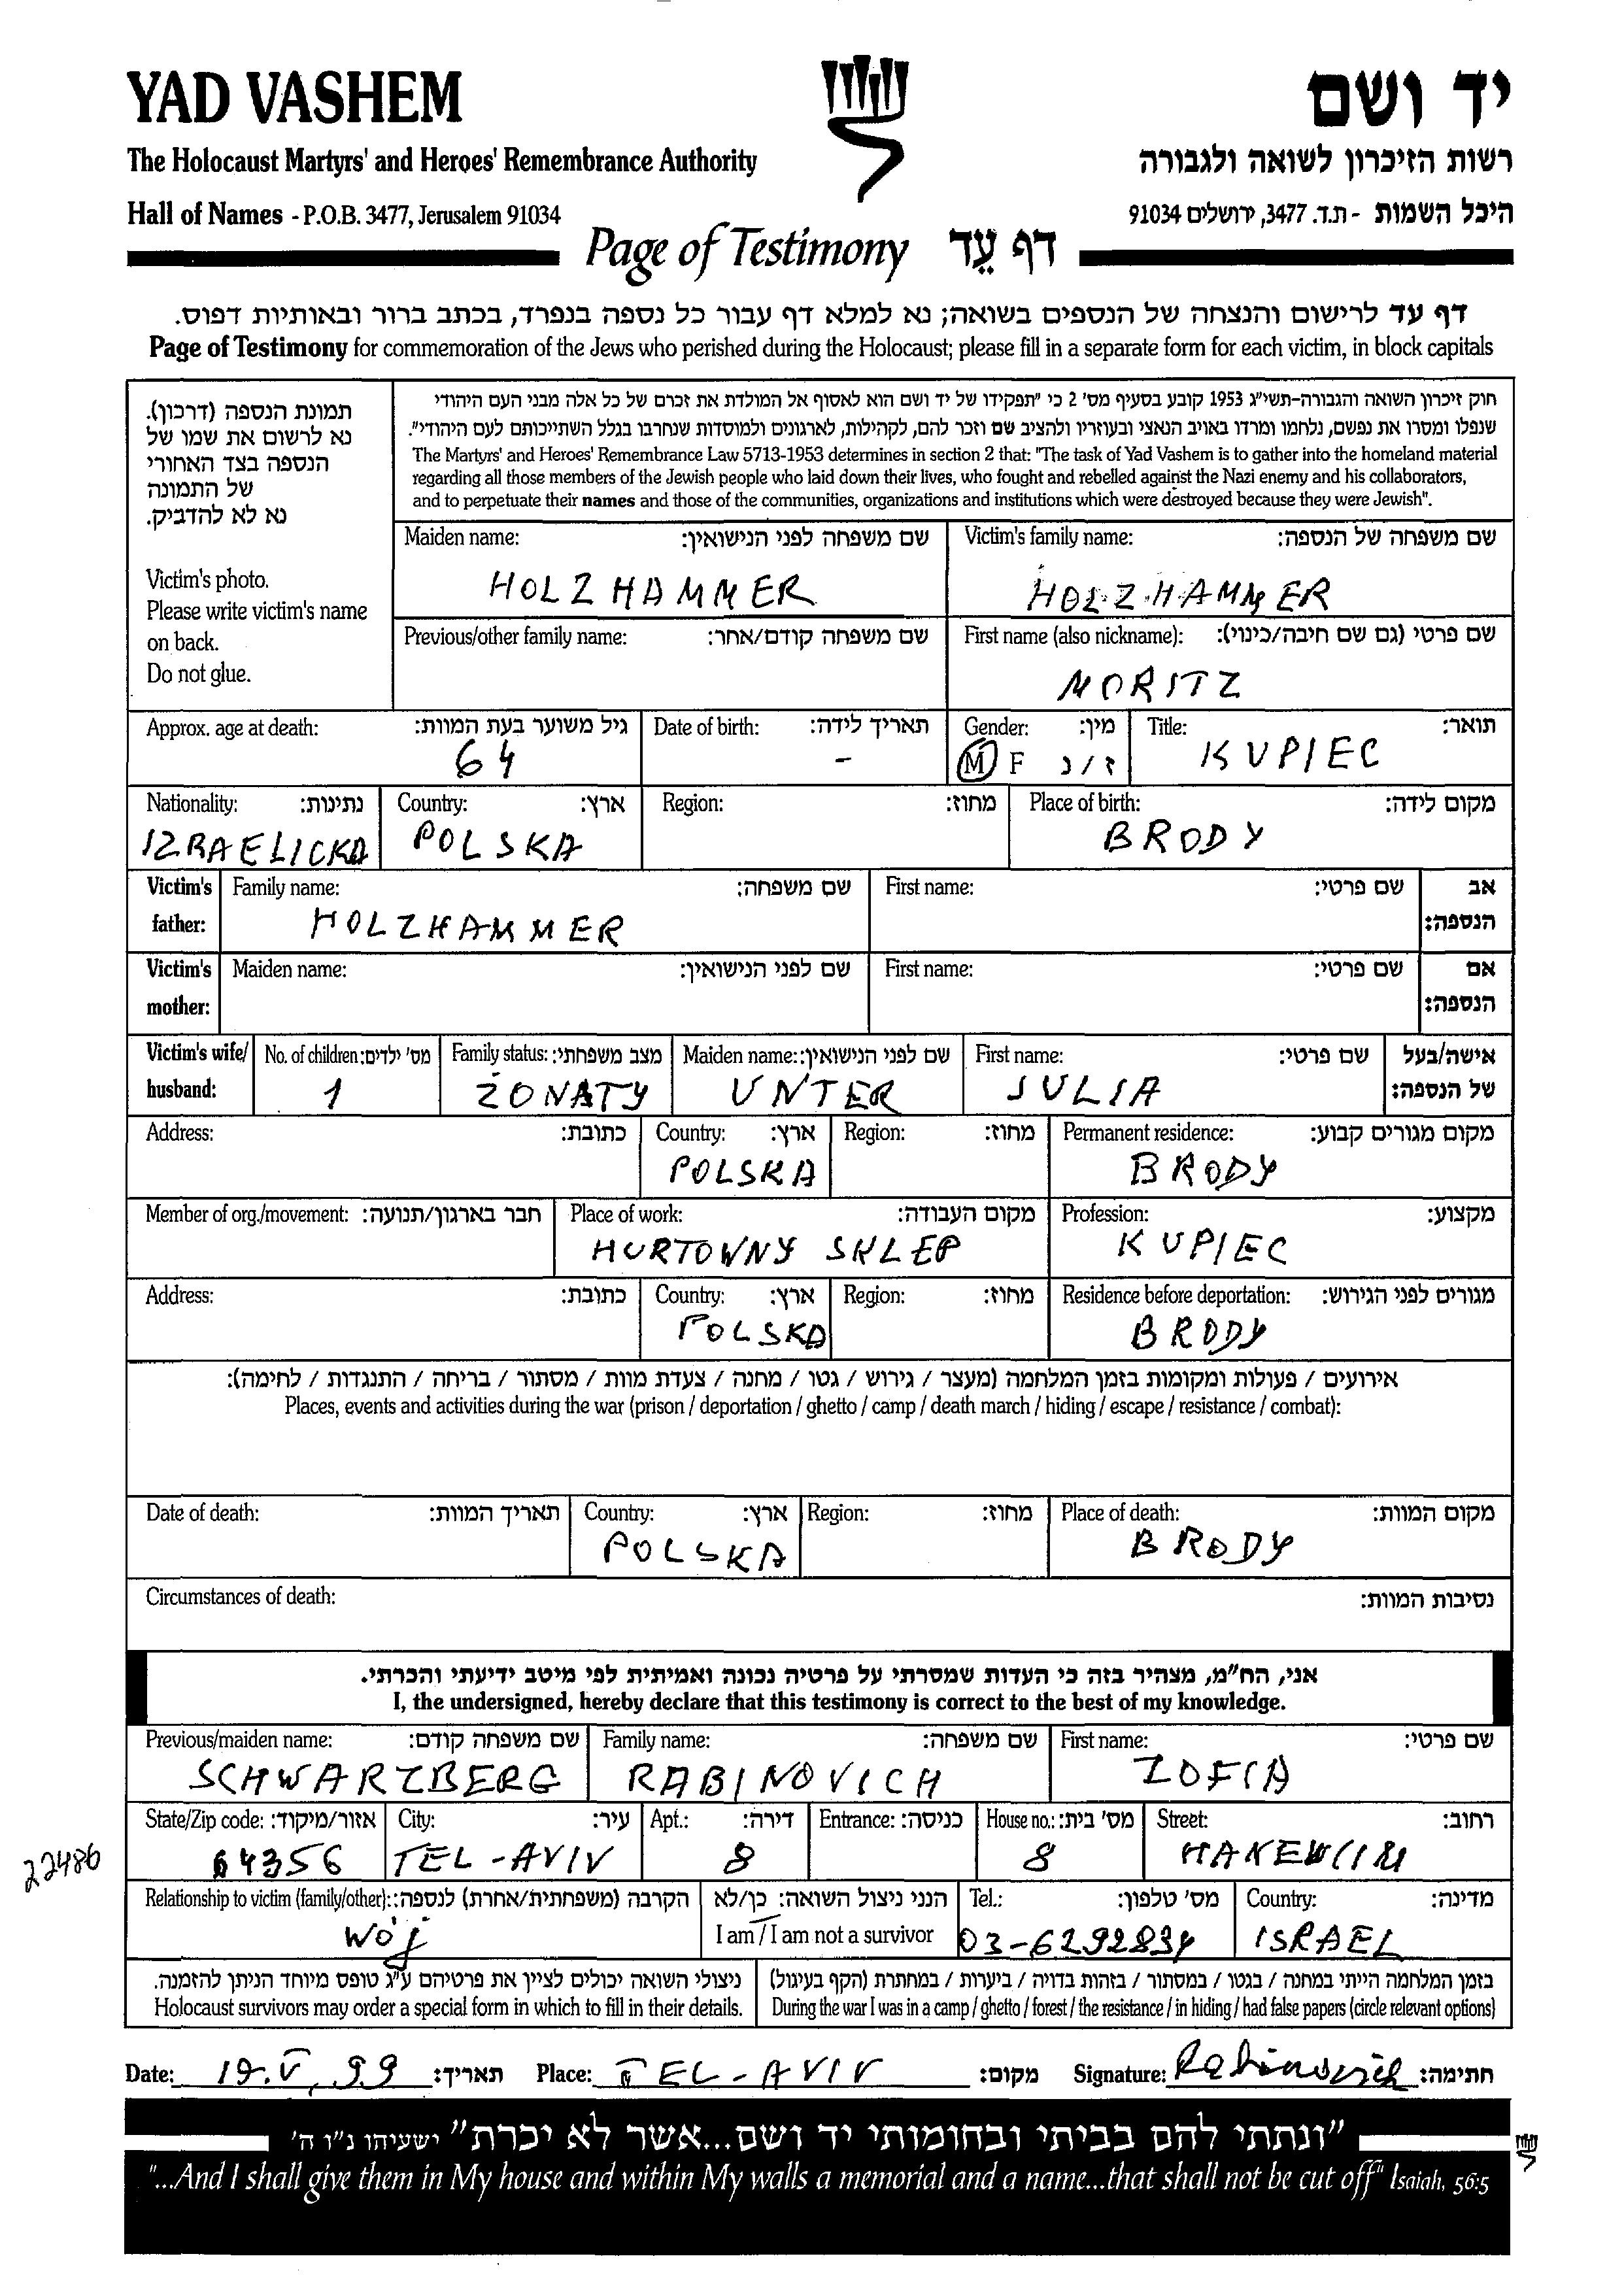 YAD VASHEM
יד ושם
The Holocaust Martyrs' and Heroes' Remembrance Authority
רשות הזיכרון לשואה ולגבורה
Hall of Names - P.O.B. 3477, Jerusalem 91034
היכל השמות - ת.ד. 3477, ירושלים 91034
Page of Testimony דף עֵד
דף עד לרישום והנצחה של הנספים בשואה; נא למלא דף עבור כל נספה בנפרד, בכתב ברור ובאותיות דפוס.
Page of Testimony for commemoration of the Jews who perished during the Holocaust; please fill in a separate form for each victim, in block capitals
תמונת הנספה (דרכון).
נא לרשום את שמו של
הנספה בצד האחורי
של התמונה
נא לא להדביק.
Victim's photo.
Please write victim's name
on back.
Do not glue.
חוק זיכרון השואה והגבורה-תשי"ג 1953 קובע בסעיף מס' 2 כי "תפקידו של יד ושם הוא לאסוף אל המולדת את זכרם של כל אלה מבני העם היהודי
שנפלו ומסרו את נפשם, נלחמו ומרדו באויב הנאצי ובעוזריו ולהציב שם וזכר להם, לקהילות, לארגונים ולמוסדות שנחרבו בגלל השתייכותם לעם היהודי".
The Martyrs' and Heroes' Remembrance Law 5713-1953 determines in section 2 that: "The task of Yad Vashem is to gather into the homeland material
regarding all those members of the Jewish people who laid down their lives, who fought and rebelled against the Nazi enemy and his collaborators,
and to perpetuate their names and those of the communities, organizations and institutions which were destroyed because they were Jewish".
Maiden name: שם משפחה לפני הנישואין:
HOLZHAMMER
Victim's family name: שם משפחה של הנספה:
HOLZHAMMER
Previous/other family name: שם משפחה קודם/אחר:
First name (also nickname): שם פרטי (גם שם חיבה/כינוי):
MORITZ
Approx. age at death: גיל משוער בעת המוות:
64
Date of birth: תאריך לידה:
-
Gender: מין:
M F ז / נ
Title: תואר:
KUPIEC
Nationality: נתינות:
IZRAELICKA
Country: ארץ:
POLSKA
Region: מחוז:
Place of birth: מקום לידה:
BRODY
Victim's father:
Family name: שם משפחה:
HOLZHAMMER
First name: שם פרטי:
אב הנספה:
Victim's mother:
Maiden name: שם לפני הנישואין:
First name: שם פרטי:
אם הנספה:
Victim's wife/ husband:
No. of children: מס' ילדים:
1
Family status: מצב משפחתי:
ŻONATY
Maiden name: שם לפני הנישואין:
UNTER
First name: שם פרטי:
JULIA
אישה/בעל של הנספה:
Address: כתובת:
Country: ארץ:
POLSKA
Region: מחוז:
Permanent residence: מקום מגורים קבוע:
BRODY
Member of org./movement: חבר בארגון/תנועה:
Place of work: מקום העבודה:
HURTOWNY SKLEP
Profession: מקצוע:
KUPIEC
Address: כתובת:
Country: ארץ:
POLSKA
Region: מחוז:
Residence before deportation: מגורים לפני הגירוש:
BRODY
אירועים / פעולות ומקומות בזמן המלחמה (מעצר / גירוש / גטו / מחנה / צעדת מוות / מסתור / בריחה / התנגדות / לחימה):
Places, events and activities during the war (prison / deportation / ghetto / camp / death march / hiding / escape / resistance / combat):
Date of death: תאריך המוות:
Country: ארץ:
POLSKA
Region: מחוז:
Place of death: מקום המוות:
BRODY
Circumstances of death: נסיבות המוות:
אני, הח"מ, מצהיר בזה כי העדות שמסרתי על פרטיה נכונה ואמיתית לפי מיטב ידיעתי והכרתי.
I, the undersigned, hereby declare that this testimony is correct to the best of my knowledge.
Previous/maiden name: שם משפחה קודם:
SCHWARZBERG
Family name: שם משפחה:
RABINOVICH
First name: שם פרטי:
ZOFIA
State/Zip code: אזור/מיקוד:
64356
City: עיר:
TEL-AVIV
Apt.: דירה:
8
Entrance: כניסה:
House no.: מס' בית:
8
Street: רחוב:
22486
Relationship to victim (family/other): הקרבה (משפחתית/אחרת) לנספה:
wój
הנני ניצול השואה: כן/לא
I am / I am not a survivor
Tel.: מס' טלפון:
03-6292834
Country: מדינה:
ISRAEL
ניצולי השואה יכולים לציין את פרטיהם ע"ג טופס מיוחד הניתן להזמנה.
Holocaust survivors may order a special form in which to fill in their details.
בזמן המלחמה הייתי במחנה / בגטו / במסתור / בזהות בדויה / ביערות / במחתרת (הקף בעיגול)
During the war I was in a camp / ghetto / forest / the resistance / in hiding / had false papers (circle relevant options)
Date: 19.V.99 תאריך: Place: TEL-AVIV מקום: Signature: Rabinovich חתימה:
"ונתתי להם בביתי ובחומותי יד ושם...אשר לא יכרת" ישעיהו נ"ו ה'
"...And I shall give them in My house and within My walls a memorial and a name...that shall not be cut off" Isaiah, 56:5